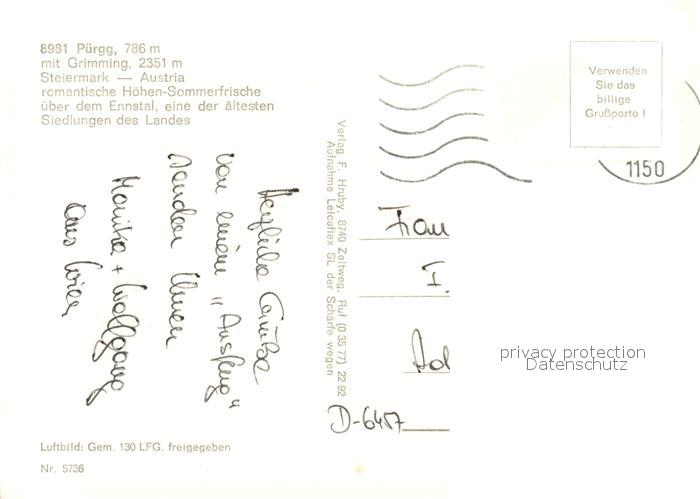 8981 Pürgg, 786 m
mit Grimming, 2351 m
Steiermark — Austria
romantische Höhen-Sommerfrische
über dem Ennstal, eine der ältesten
Siedlungen des Landes
Herzliche Grüße
von einem „Ausflug“
senden Ihnen
Monika + Wolfgang
aus Wien
Luftbild: Gem. 130 LFG. freigegeben
Nr. 5736
Verlag F. Hruby, 8740 Zeltweg, Ruf (0 35 77) 22 92
Aufnahme Leicaflex SL der Schärfe wegen
Verwenden
Sie das
billige
Grußporto !
1150
Frau
F.
Ad
D-6457
privacy protection
Datenschutz